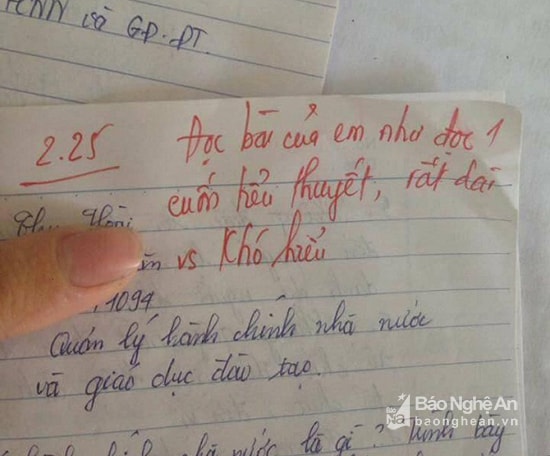 và GD-ĐT.
2.25 Đọc bài của em như đọc 1
cuốn tiểu thuyết, rất dài
vs khó hiểu
1094
Quản lý hành chính nhà nước
và giáo dục đào tạo.
nhà nước là gì? Trình bày
Báo Nghệ An
baonghean.vn